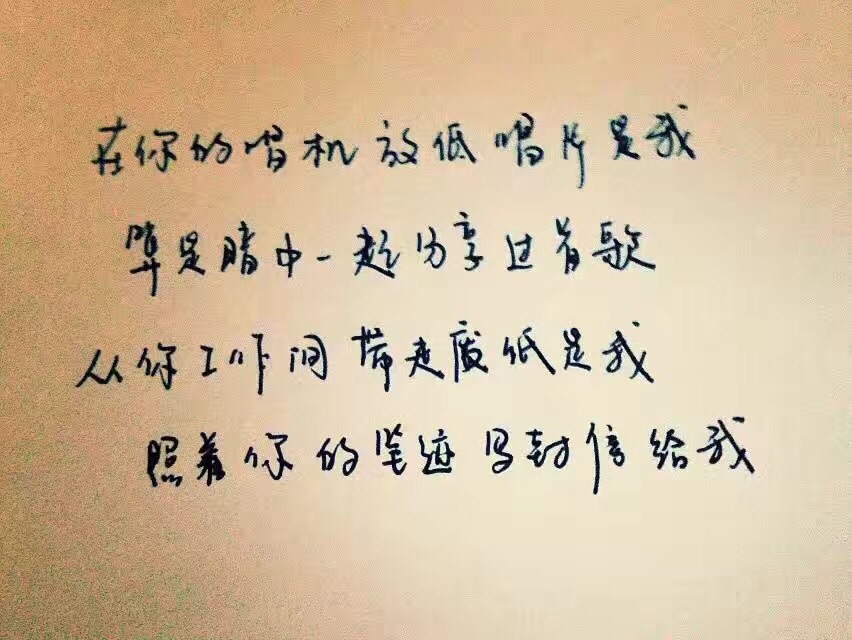 在你的唱机放低唱片是我
算是暗中一起分享过首歌
从你工作间带走废纸是我
照着你的笔迹写封信给我